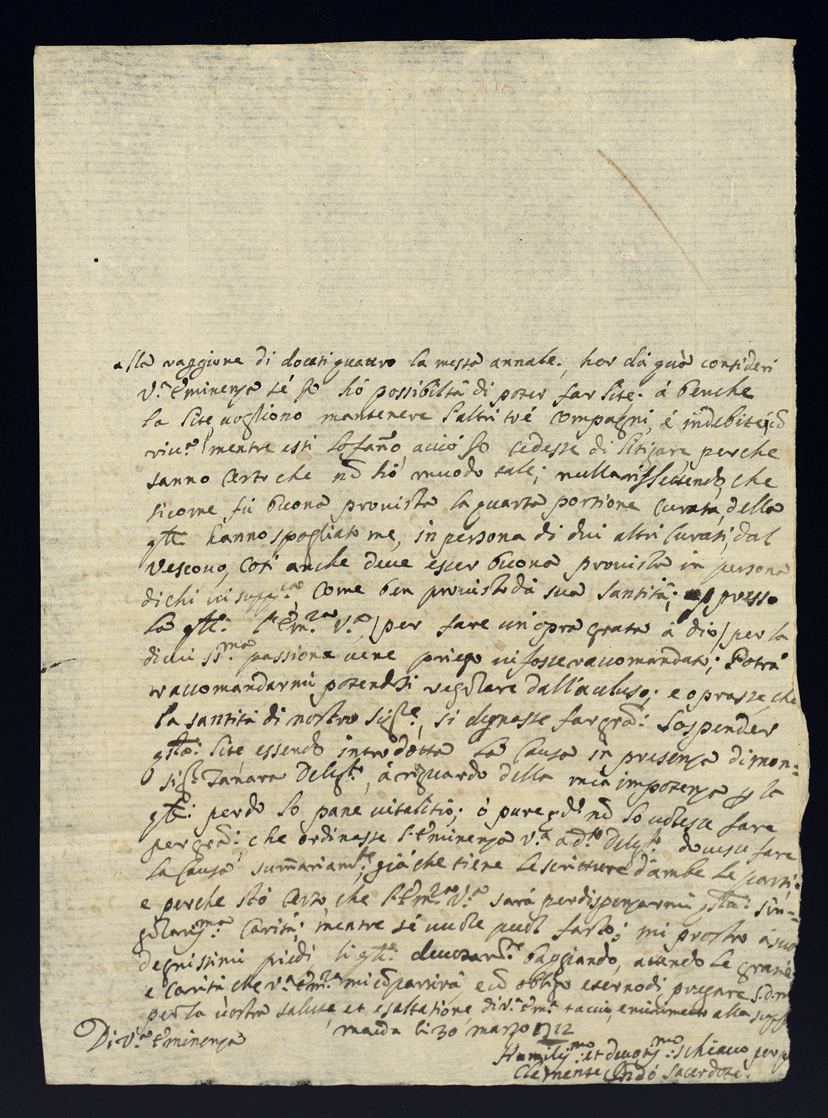 alla raggione di docati quatro la messa annale, hor da què consideri
V.ra Eminenza sé Io hó possibiltá di poter far lite. á benche
la lite, vogliono mantenere l'altri tré Compagni, é indebite
mentre esti lo fanno, acció Io cedesse di litigare, perche
sanno certo che nõ hó muodo tale; nulla riflettendo, che
sicome fú buona provista la quarta portione Curata, della
q.le hanno spogliato me, in persona di dui altri Curati, dal
Vescovo, Cosí anche deve esser buona provista in persona
di chi vi supp.ca, Come ben provisto dá sua Santitá; appresso
la q.le l'Em.za V.ra /per fare un'opra grata á dio/ per la
di cui SS.ma passione vene priego vi fosse raccomandato; Potrá
raccomandarmi potendosi regolare dall'acluso; e oprasse, che
la santitá di nostro Sig.re, si degnasse far gra: Sospender
q.sta lite essendo introdotta la Causa in presenza di mon=
sig.r Tanara Deleg.to, á riguardo della mia impotenza p la
q.le perdo lo pane vitalitio; ó pure nõ lo volesse fare
per gra: che ordinasse l'Eminenza V.ra a d.to Deleg.to dovesse fare
la Causa summariam.te, giá che tiene le scritture d'ambe le parti;
e perche stó Certo, che l'Em.za V.ra sará per dispenzarmi q.sta: sin=
golariss.ma Caritá; mentre sé vuole puol farlo; mi prostro á suoi
degnissimi piedi li q.li devotam.te baggiando, atando le grazie
e Caritá che V.ra Em.za mi cõpartirá, e cõ obligo eterno di pregare S.D.M.
per la vostra salute et esaltatione di V.ra Em.za taccio, e
Di V.ra Eminenza Maida li 30 marzo 1712
Humiliss.mo et devotiss.mo schiavo per
Clemente Sacerdote.